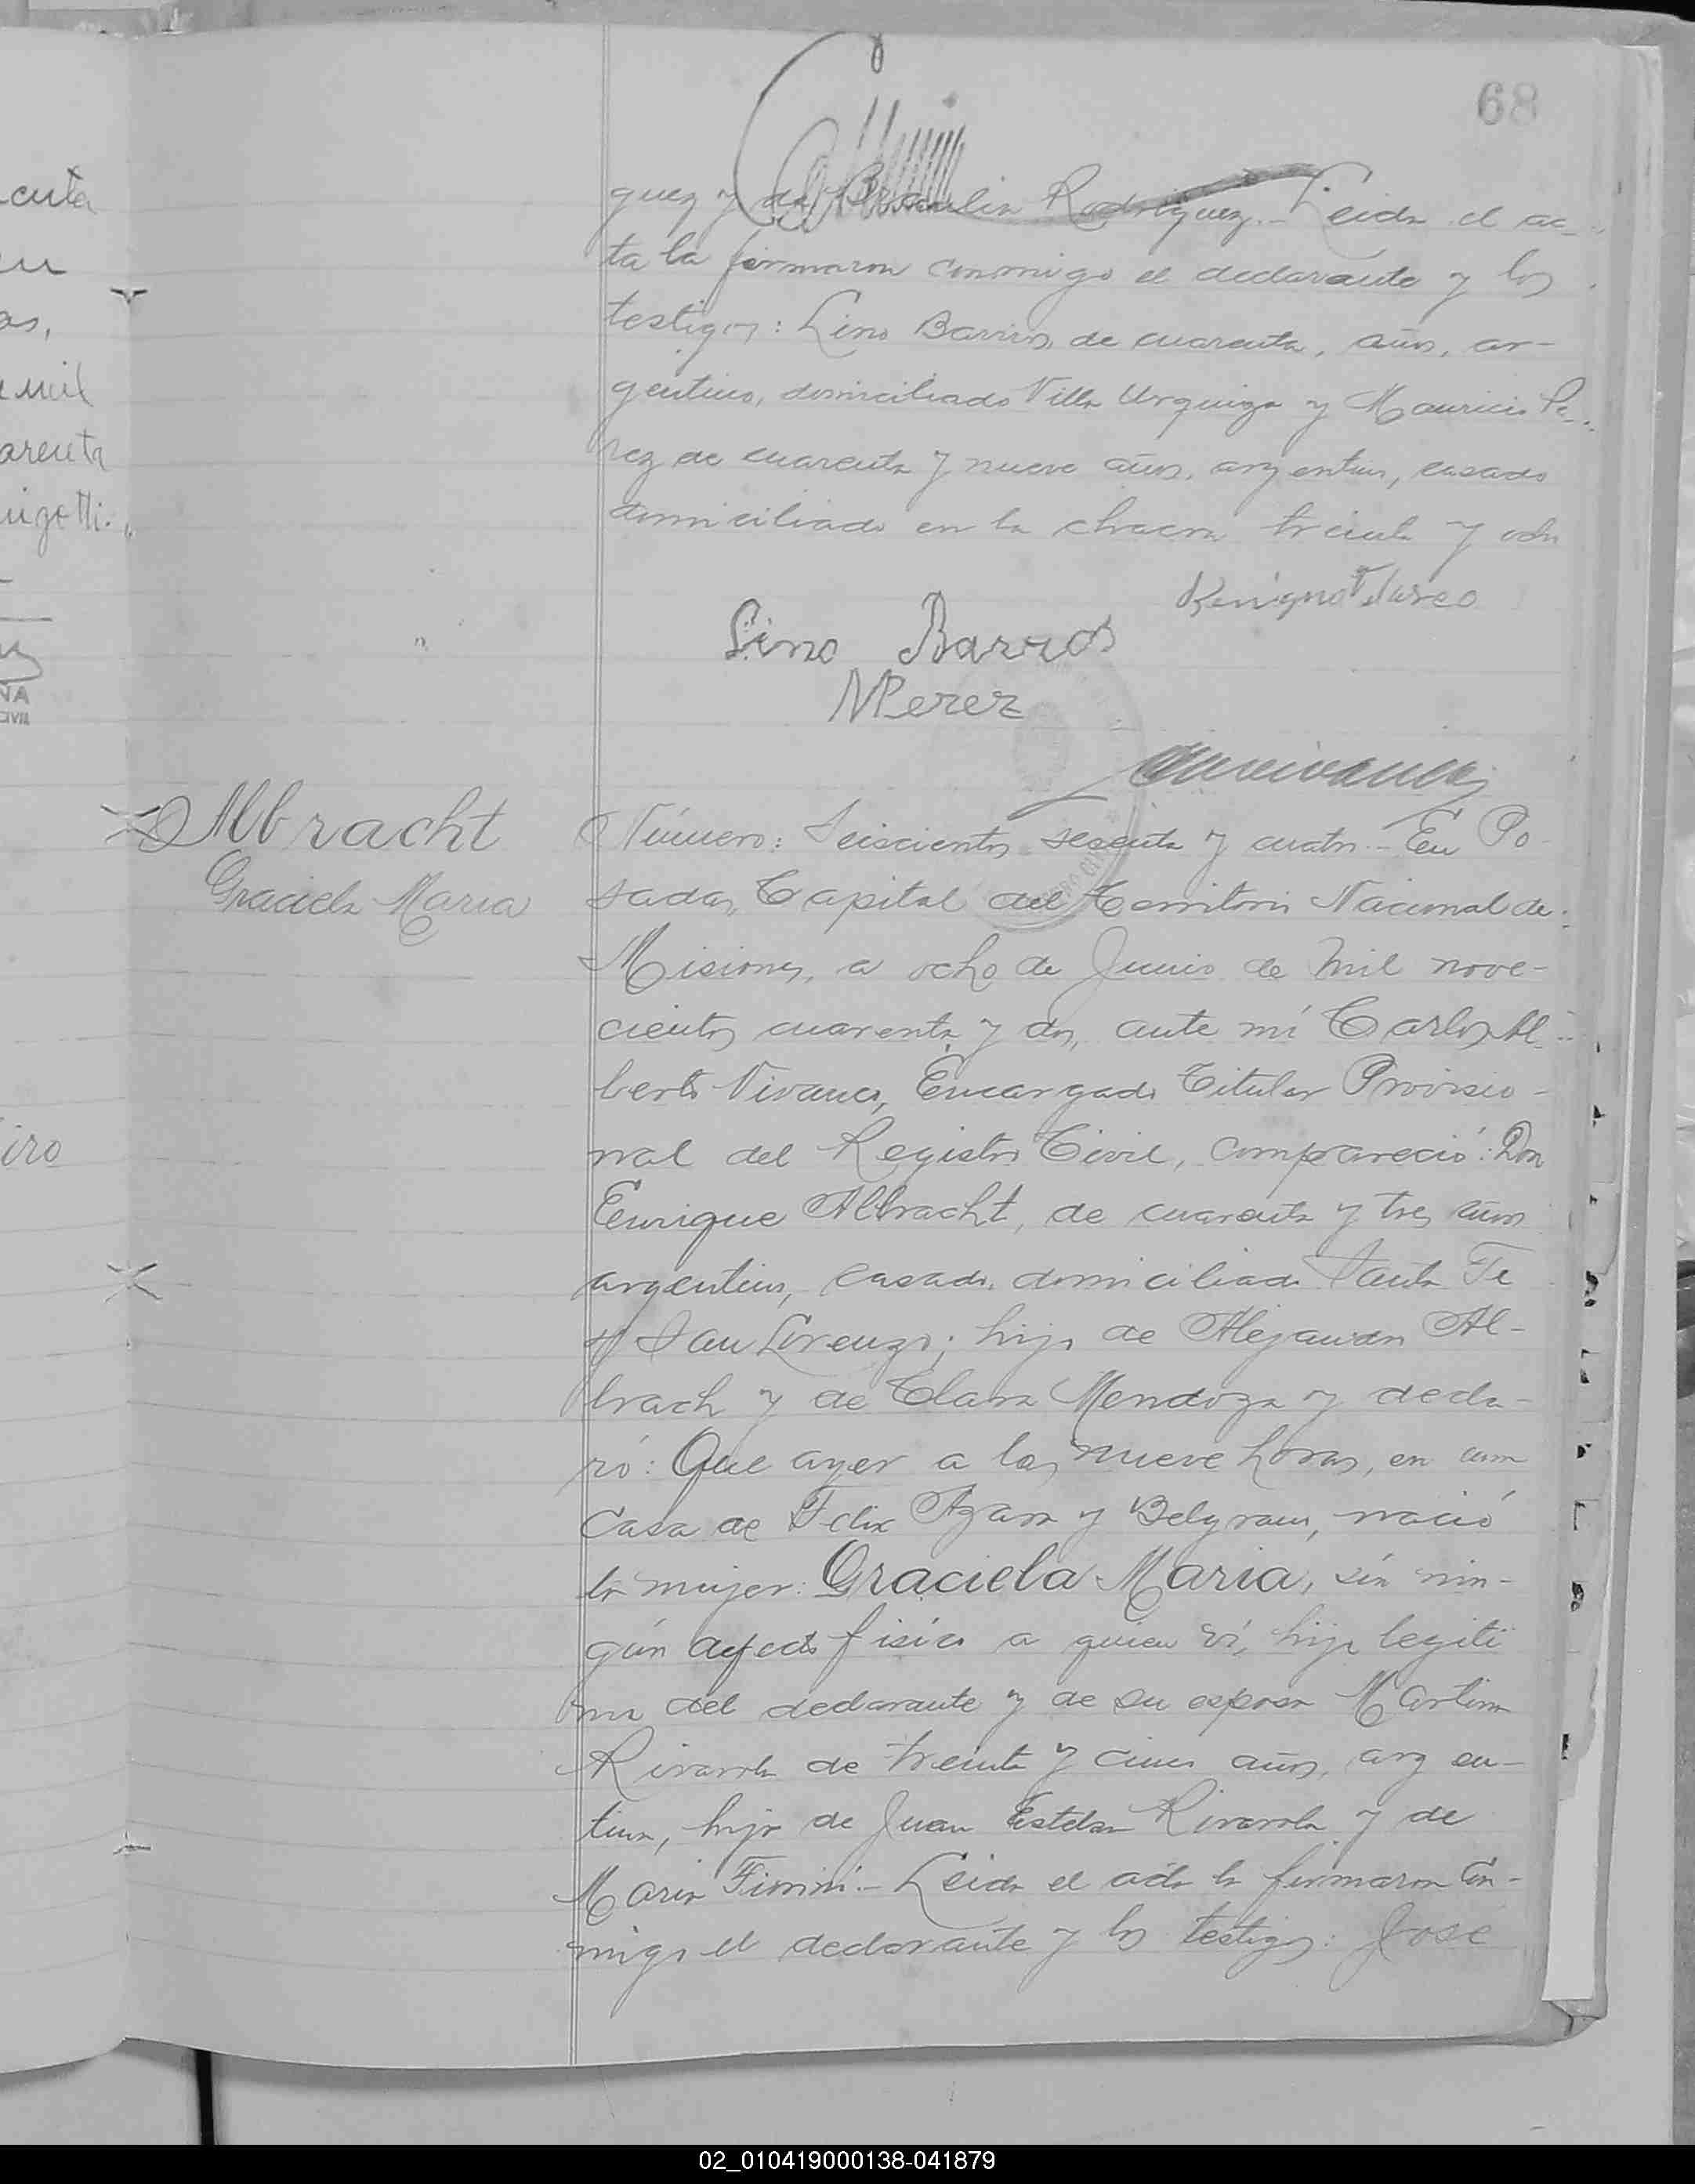 68
guez y de Braulia Rodriguez.- Leida el ac-
ta la firmaron conmigo el declarante y los
testigos: Lino Barrios, de cuarenta, años, ar-
gentino, domiciliado Villa Urquiza y Mauricio Pe-
rez de cuarenta y nueve años, argentino, casado
domiciliado en la chacra treinta y ocho
Benigno
Lino Barrios
MPerez
Albracht
Graciela Maria
Número: Seiscientos sesenta y cuatro.- En Po-
sadas, Capital del Territorio Nacional de
Misiones, a ocho de Junio de mil nove-
cientos cuarenta y dos, ante mí Carlos Al-
berto Vivanco, Encargado Titular Provisio-
nal del Registro Civil, compareció: Don
Enrique Albracht, de cuarenta y tres años
argentino, casado, domiciliado Santa Fe
y San Lorenzo; hijo de Alejandro Al-
brach y de Clara Mendoza y decla-
ró: Que ayer a las nueve horas, en una
casa de Felix Azara y Belgrano, nació
la mujer: Graciela Maria, sin nin-
gún defecto fisico a quien ví, hija legiti
ma del declarante y de su esposa Martina
Rivarola de treinta y cinco años, argen-
tina, hija de Juan Esteban Rivarola y de
Maria Fimini.- Leida el acta la firmaron con-
migo el declarante y los testigos: José
cuta
en
as,
mil
arenta
NA
CIVIL
iro
02_010419000138-041879